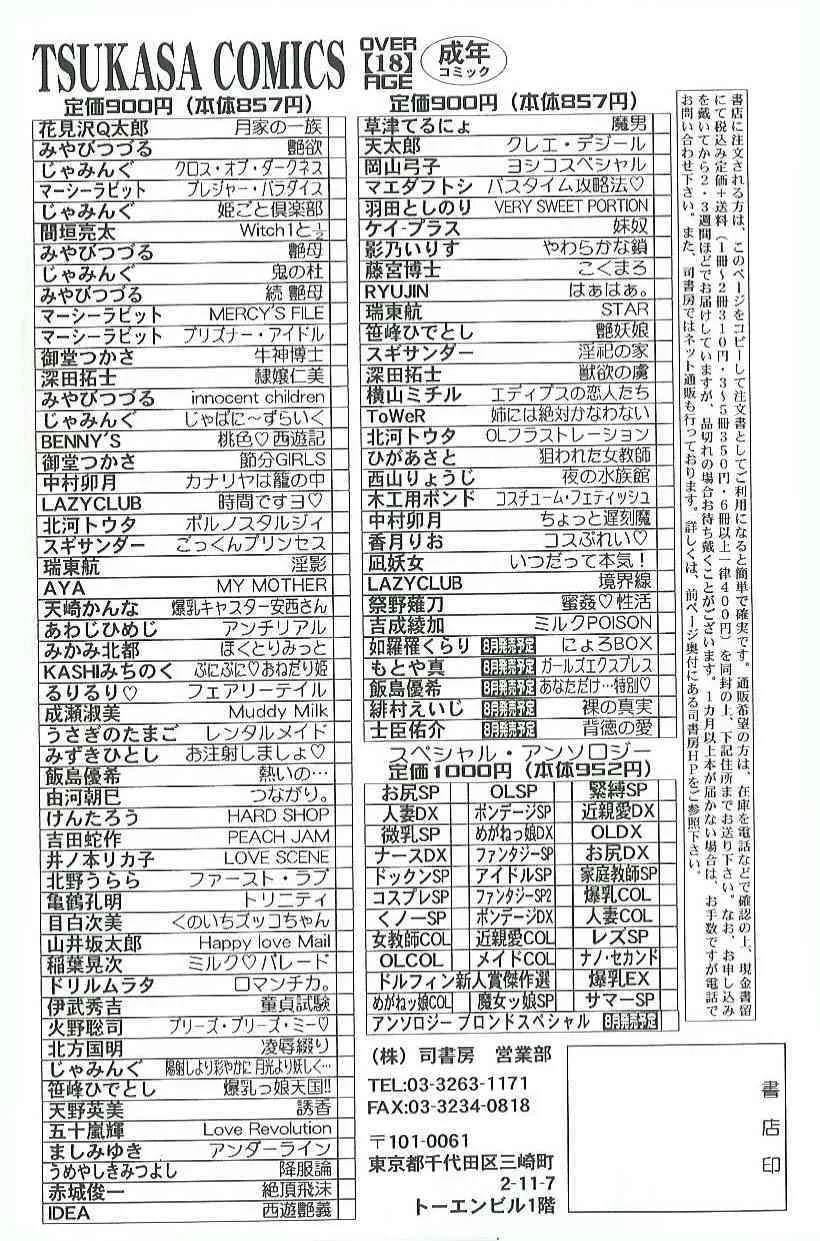 TSUKASA COMICS
OVER
【18】
AGE
成年
コミック
定価900円（本体857円）
花見沢Q太郎 月家の一族
みやびつづる 艶欲
じゃみんぐ クロス・オブ・ダークネス
マーシーラビット プレジャー・パラダイス
じゃみんぐ 姫ごと倶楽部
間垣亮太 Witch1と½
みやびつづる 艶母
じゃみんぐ 鬼の杜
みやびつづる 続 艶母
マーシーラビット MERCY'S FILE
マーシーラビット プリズナー・アイドル
御堂つかさ 牛神博士
深田拓士 隷嬢仁美
みやびつづる innocent children
じゃみんぐ じゃばに〜ずらいく
BENNY'S 桃色♡西遊記
御堂つかさ 節分GIRLS
中村卯月 カナリヤは籠の中
LAZYCLUB 時間ですヨ♡
北河トウタ ポルノスタルジィ
スギサンダー ごっくんプリンセス
瑞東航 淫影
AYA MY MOTHER
天崎かんな 爆乳キャスター安西さん
あわじひめじ アンチリアル
みかみ北都 ほくとりみっと
KASHIみちのく ぷにぷに♡おねだり姫
るりるり♡ フェアリーテイル
成瀬淑美 Muddy Milk
うさぎのたまご レンタルメイド
みずきひとし お注射しましょ♡
飯島優希 熱いの…
由河朝巳 つながり。
けんたろう HARD SHOP
吉田蛇作 PEACH JAM
井ノ本リカ子 LOVE SCENE
北野うらら ファースト・ラブ
亀鶴孔明 トリニティ
目白次美 くのいちズッコちゃん
山井坂太郎 Happy love Mail
稲葉晃次 ミルク♡パレード
ドリルムラタ ロマンチカ。
伊武秀吉 童貞試験
火野聡司 プリーズ・プリーズ・ミー♡
北方国明 凌辱綴り
じゃみんぐ 陽射しより彩やかに月光より妖しく…
笹峰ひでとし 爆乳っ娘天国!!
天野英美 誘香
五十嵐輝 Love Revolution
ましみゆき アンダーライン
うめやしきみつよし 降服論
赤城俊一 絶頂飛沫
IDEA 西遊艶義
定価900円（本体857円）
草津てるにょ 魔男
天太郎 クレエ・デジール
岡山弓子 ヨシコスペシャル
マエダフトシ バスタイム攻略法♡
羽田としのり VERY SWEET PORTION
ケイ-プラス 妹奴
影乃いりす やわらかな鎖
藤宮博士 こくまろ
RYUJIN はぁはぁ。
瑞東航 STAR
笹峰ひでとし 艶妖娘
スギサンダー 淫祀の家
深田拓士 獣欲の虜
横山ミチル エディプスの恋人たち
ToWeR 姉には絶対かなわない
北河トウタ OLフラストレーション
ひがあさと 狙われた女教師
西山りょうじ 夜の水族館
木工用ボンド コスチューム・フェティッシュ
中村卯月 ちょっと遅刻魔
香月りお コスぷれい♡
凪妖女 いつだって本気！
LAZYCLUB 境界線
祭野薙刀 蜜姦♡性活
吉成綾加 ミルクPOISON
如羅羅くらり 8月発売予定 にょろBOX
もとや真 8月発売予定 ガールズエクスプレス
飯島優希 8月発売予定 あなただけ…特別♡
緋村えいじ 8月発売予定 裸の真実
士臣佑介 8月発売予定 背徳の愛
スペシャル・アンソロジー
定価1000円（本体952円）
お尻SP OLSP 緊縛SP
人妻DX ボンデージSP 近親愛DX
微乳SP めがねっ娘DX OLDX
ナースDX ファンタジーSP お尻DX
ドックンSP アイドルSP 家庭教師SP
コスプレSP ファンタジーSP2 爆乳COL
くノーSP ボンデージDX 人妻COL
女教師COL 近親愛COL レズSP
OLCOL メイドCOL ナノ・セカンド
ドルフィン新人賞傑作選 爆乳EX
めがねッ娘COL 魔女ッ娘SP サマーSP
アンソロジー ブロンドスペシャル 8月発売予定
書店に注文される方は、このページをコピーして注文書としてご利用になると簡単で確実です。通販希望の方は、在庫を電話などで確認の上、現金書留
にて税込み定価＋送料（1冊〜2冊310円・3〜5冊350円・6冊以上一律400円）を同封の上、下記住所までお送り下さい。なお、お申し込み
を戴いてから2・3週間ほどでお届けしていますが、品切れの場合お待ち戴くことがございます。1カ月以上本が届かない場合は、お手数ですが電話で
お問い合わせ下さい。また、司書房ではネット通販も行っております。詳しくは、前ページ奥付にある司書房HPをご参照下さい。
（株）司書房 営業部
TEL:03-3263-1171
FAX:03-3234-0818
〒101-0061
東京都千代田区三崎町
2-11-7
トーエンビル1階
書店印